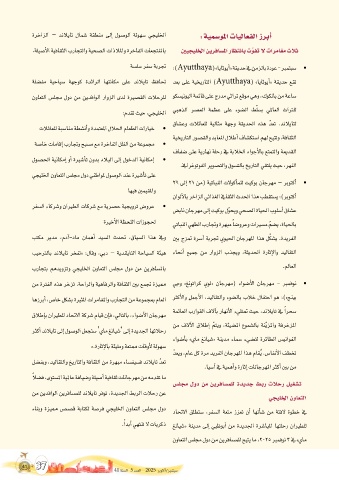 أبرز الفعاليات الموسمية:
ثلاث مغامرات لا تفوّت بانتظار المسافرين الخليجيين
سبتمبر – عودة بالزمن في مدينة «أيوثايا» (Ayutthaya):
تقع مدينة «أيوثايا» (Ayutthaya) التاريخية على بعد
ساعة من بانكوك، وهي موقع تراثي مدرج على قائمة اليونيسكو
للتراث العالمي يسلّط الضوء على عظمة العصر الذهبي
لتايلاند. تعدّ هذه المدينة وجهة مثالية للعائلات وعشاق
الثقافة، وتتيح لهم استكشاف أطلال المعابد والقصور التاريخية
القديمة والتمتع بالأجواء الخلابة في رحلة نهرية على ضفاف
النهر، حيث يلتقي التاريخ بالتسوق والتصوير الفوتوغرافي
أكتوبر – مهرجان بوكيت للمأكولات النباتية (من ٢١ إلى ٢٩
أكتوبر): يستقطب هذا الحدث الثقافي الغذائي الزاخر بالألوان
عشاق أسلوب الحياة الصحي ويحوّل بوكيت إلى مهرجان نابض
بالحياة، يضمّ مسيرات وعروضاً مبهرة وتجارب الطهي النباتي
الفريدة. يشكّل هذا المهرجان الحيوي تجربة آسرة تمزج بين
التقاليد والإثارة الحديثة، ويجذب الزوار من جميع أنحاء
العالم.
نوفمبر – مهرجان الأضواء (مهرجان «لوي كراتونغ» و«يي
بينغ»)، هو احتفال خلاب بالضوء والتقاليد، الأجمل والأكثر
سحراً في تايلاند، حيث تمتلئ الأنهار بآلاف القوارب العائمة
المزخرفة والمزيّنة بالشموع المضيئة، ويتمّ إطلاق الآلاف من
الفوانيس الطائرة لتضيء سماء مدينة «شيانغ ماي» بأضواء
تخطف الأنفاس. يُقام هذا المهرجان الفريد مرة كل عام، ويعدّ
من بين أكثر المهرجانات إثارة وأهمية في آسيا.
تشغيل رحلات ربط جديدة للمسافرين من دول مجلس
التعاون الخليجي
في خطوة لافتة من شأنها أن تعزز متعة السفر، ستطلق الاتحاد
للطيران رحلتها المباشرة الجديدة من أبوظبي إلى مدينة «شيانغ
ماي» في ٣ نوفمبر ٢٠٢٥، ما يتيح للمسافرين من دول مجلس التعاون
الخليجي سهولة الوصول إلى منطقة شمال تايلاند – الزاخرة
بالمنتجعات الفاخرة والملاذات الصحية والتجارب الثقافية الأصيلة.
تجربة سفر سلسة
تحافظ تايلاند على مكانتها الرائدة كوجهة سياحية مفضلة
للرحلات القصيرة لدى الزوار الوافدين من دول مجلس التعاون
الخليجي، حيث تقدم:
خيارات الطعام الحلال المعتمدة وأنشطة مناسبة للعائلات
مجموعة من الفلل الفاخرة مع مسبح وتجارب إقامات خاصة
إمكانية الدخول إلى البلاد بدون تأشيرة أو إمكانية الحصول
على تأشيرة عند الوصول لمواطني دول مجلس التعاون الخليجي
والمقيمين فيها
عروض ترويجية حصرية مع شركات الطيران وشركاء السفر
لحجوزات اللحظة الأخيرة
وفي هذا السياق، تحدث السيد
هيئة السياحة التايلاندية – دبي، وقال: «نفخر تايلاند بالترحيب
بالمسافرين من دول مجلس التعاون الخليجي وتزويدهم بتجارب
مميزة تجمع بين الثقافة والرفاهية والراحة. تزخر هذه الفترة من
العام بمجموعة من التجارب والمغامرات المثيرة بشكل خاص، أبرزها
مهرجان الأضواء. بالتالي، فإن قيام شركة الاتحاد للطيران بإطلاق
رحلاتها الجديدة إلى «شيانغ ماي» ستجعل الوصول إلى تايلاند أكثر
سهولة لأوقات ممتعة ومليئة بالإثارة.»
تعدّ تايلاند فسيفساء مبهرة من الثقافة والتاريخ والتقاليد. وبفضل
ما تقدمه من مهرجانات ثقافية أصيلة وضيافة عالمية المستوى، فضلاً
عن رحلات الربط الجديدة، توفر تايلاند للمسافرين الوافدين من
دول مجلس التعاون الخليجي فرصة لكتابة قصص مميزة وبناء
ذكريات لا تنتهي أبداً.
37